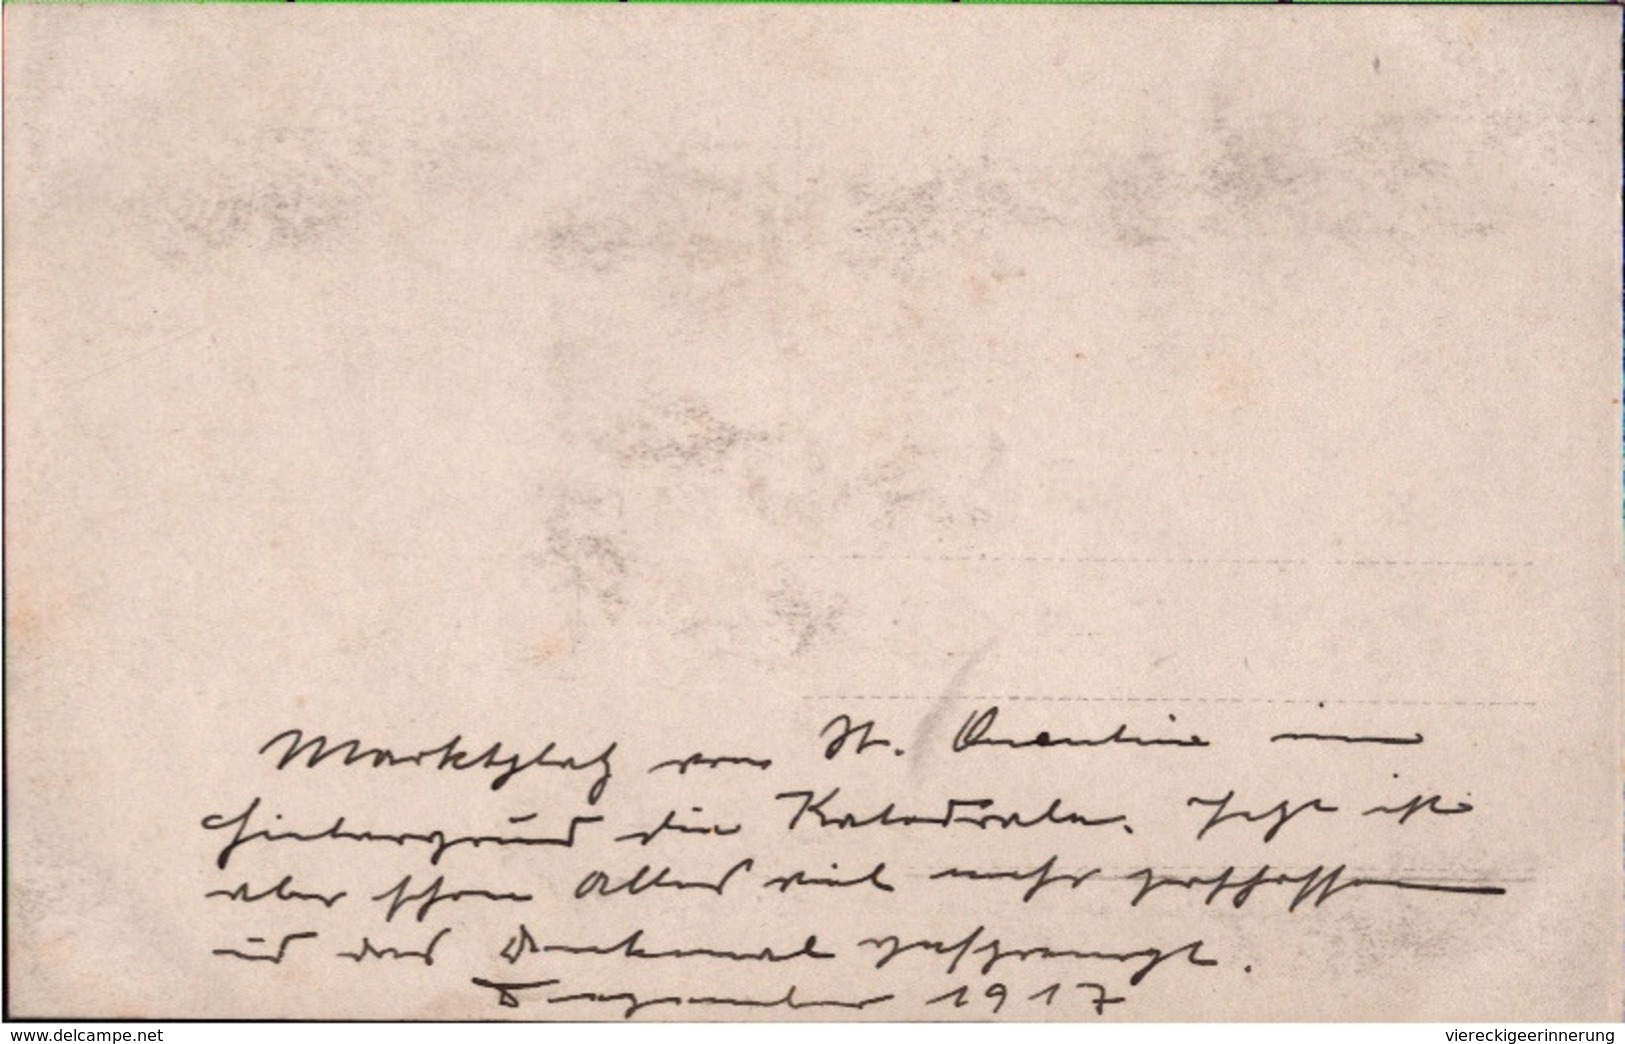 Marktplatz von St. Quentin im
Hintergrund die Katedrale. Jetzt ist
aber schon Alles viel mehr zerschossen
und das Denkmal gesprengt.
Dezember 1917
www.delcampe.net
viereckigeerinnerung